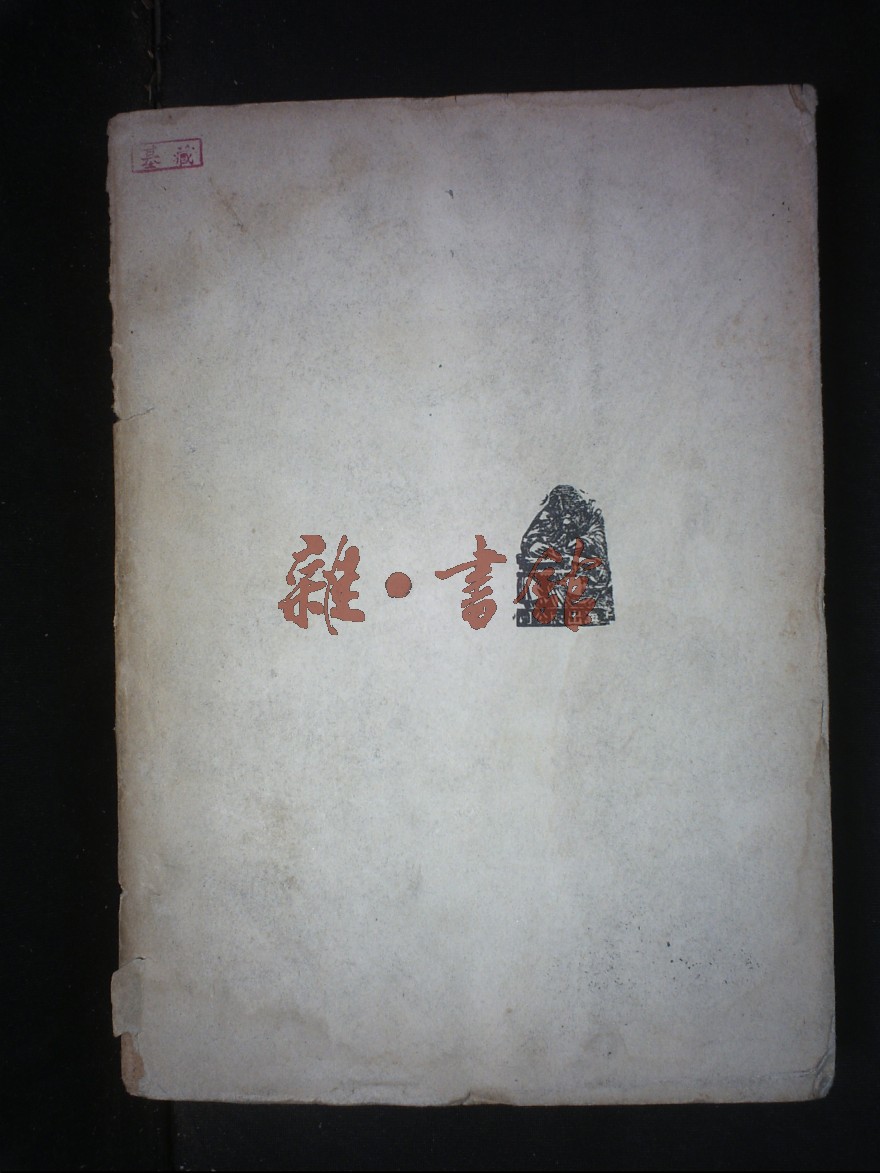 基藏
雜·書館